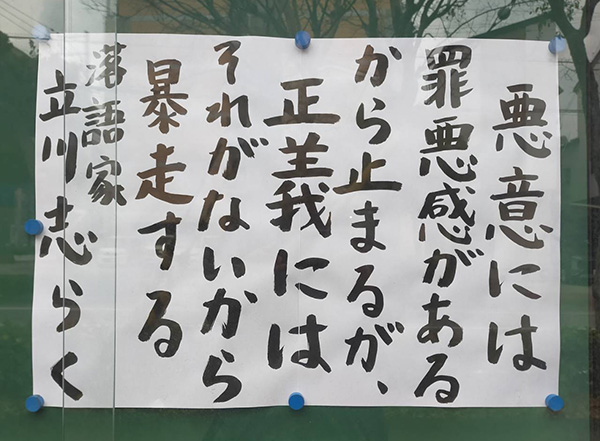 悪意には
罪悪感がある
から止まるが、
正義には
それがないから
暴走する
落語家
立川志らく